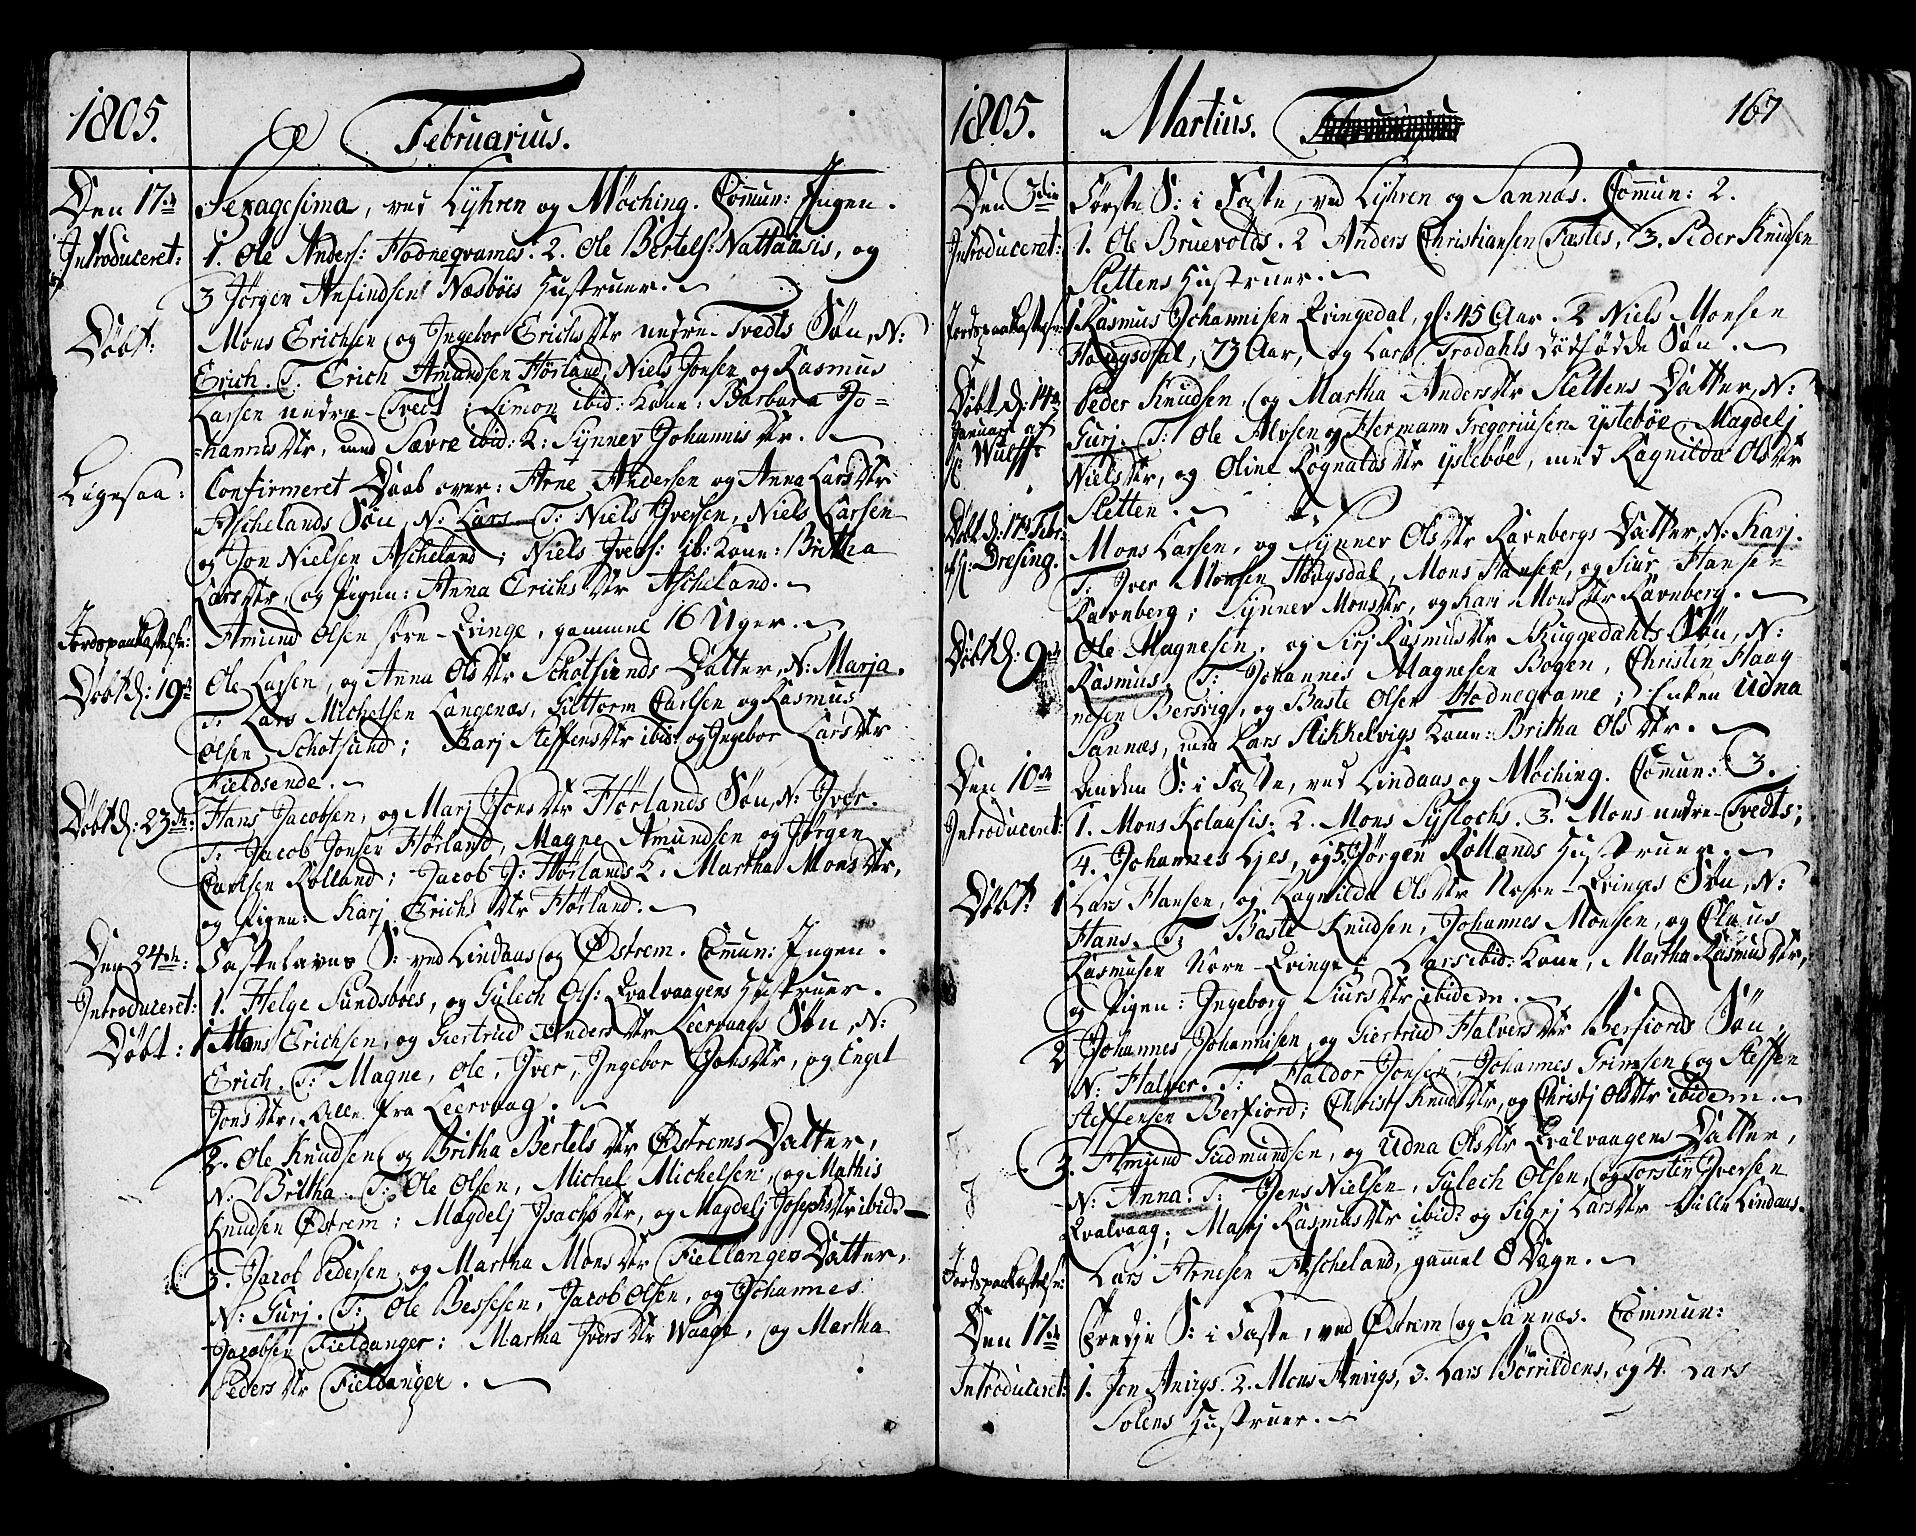 1805. Februarius.
Den 17de Sexagesima, ved Lyhren og Møching. Commun: Ingen.
Introduceret: 1. Ole Anders: Hodneqvames. 2. Ole Bertels: Nattaasis, og
3 Jørgen Anfindsens Næsbøes Hustruer.
Døbt: Mons Erichsen og Ingebor Erichsdtr nedre-Tvedts Søn, N:
Erich. T: Erich Amundsen Hörland, Niels Jonsen og Rasmus
Larsen nedre-Tvedt; Simon ibid: Kone: Barbara Jo=
=hannisdtr, med Sævre ibid: K: Synnev Johannisdtr.
Ligesaa: Confirmeret Daab over: Arne Andersen og Anna Larsdtr
Ascheland Søn, N: Lars. T: Niels Iversen, Niels Larsen
og Jon Nielsen Ascheland; Niels Ivers: ib: Kone: Britha
Larsdtr, og Pigen: Anna Erichsdtr Ascheland.
Jordspaakastelse: Amund Olsen Evinge, gammel 16 Uger.
Døbt d: 19de Ole Larsen, og Anna Olsdtr Schotsunds Datter, N: Marja.
T: Lars Michelsen Langenæs, Guttorm Carlsen og Rasmus
Olsen Schotsund; Karj Steffensdtr ibid: og Ingebor Larsdtr
Fieldsende.
Døbt d: 23de: Hans Jacobsen, og Marj Jonsdtr Hörlands Søn, N: Iver.
T: Jacob Jonsen Hörland, Magne Amundsen og Jørgen
Carlsen Rolland; Jacob J: Hörlands K. Martha Monsdtr,
og Pigen: Karj Erichsdtr Hörland.
Den 24de: Fastelavns S: ved Lindaas og Østrem. Commun: Ingen.
Introduceret: 1. Helge Sundsbøes, og Gylech Ols: Qvalvaagens Hustruer.
Døbt: 1 Mons Erichsen, og Giertrud Andersdtr Leervaags Søn, N:
Erich. T: Magne, Ole, Iver, Ingebor Jonsdtr, og Engel
Jonsdtr, Alle fra Leervaag.
2. Ole Knudsen og Britha Bertelsdtr Østrems Datter,
N: Britha. T: Ole Olsen, Michel Michelsen, og Mathis
Knudsen Østrem: Magdelj Isachsdtr, og Magdelj Josephsdtr ibid:
3. Jacob Pedersen, og Martha Monsdtr Fieldangers Datter,
N: Gurj. T: Ole Bessesen, Jacob Olsen, og Johannes
Jacobsen Fieldanger: Martha Iversdtr Waage, og Martha
Pedersdtr Fieldanger.
1805. Martius. 167
Den 3die Første S: i Faste, ved Lyhren og Sannæs. Commun: 2.
Introduceret: 1. Ole Bruevolds. 2 Anders Christiansen Fastes, 3. Peder Knudsen
Slettens Hustruer.
Jordspaakastelse: 1 Rasmus Johannisen Evingedal, gl: 45 Aar. 2 Niels Monsen
Hougsdal, 73 Aar, og Lars Trodahls dödfödde Søn.
Døbt d: 14de Peder Knudsen, og Martha Andersdtr Slettens Datter, N:
Januarj af Gurj. T: Ole Alvsen og Hermann Gregoriussen ystebøe, Magdelj
Wulff: Nielsdtr, og Oline Rognaldsdtr ystebøe, med Ragnilda Olsdtr
Sletten.
Døbt d: 17de Febr: Mons Larsen, og Synnev Olsdtr Ravnbergs Datter, N: Karj.
Dresing. T: Iver Monsen Hougsdal, Mons Hansen, og Siur Hansen
Ravnberg; Synnev Monsdtr, og Kari Monsdtr Ravnberg.
Døbt d: 9de Ole Magnesen, og Sirj Rasmusdtr Skuggedahls Søn, N:
Rasmus. T: Johannes Magnesen Bogen, Christen Haag-
nesen Bersvig, og Baste Olsen Hodneqvame; Enken Udna
Sannæs, med Lars Stikkelvigs Kone: Britha Olsdtr.
Den 10de Anden S: i Faste, ved Lindaas og Møching. Commun: 3.
Introduceret: 1. Mons Kolaasis: 2. Mons Syslochs. 3. Mons nedre-Tvedts;
4. Johannes Lyes, og 5. Jørgen Rollands Hustruer.
Døbt: 1 Lars Hansen, og Ragnilda Olsdtr Nore-Evinges Søn, N:
Hans. T: Baste Knudsen, Johannes Monsen, og Claus
Rasmusen Nore-Evinge; Lars ibid: Kone, Martha Rasmusdtr,
og Pigen: Ingeborg Siursdtr ibidem.
2 Johannes Johannisen, og Giertrud Halversdtr Berfiords Søn,
N: Halver. T: Haldor Jonsen, Johannes Grimsen og Steffen
Steffensen Berfiord; Christj Knudsdtr, og Christj Olsdtr ibidem.
3. Amund Gudmundsen, og Udna Olsdtr Qvalvaagens Datter,
N: Anna. T: Jens Nielsen, Gylech Olsen, og Torsten Iversen
Qvalvaag; Marj Rasmusdtr ibid: og Sigrj Larsdtr Lille Lindaas.
Jordspaakastelse: Lars Arnesen Ascheland, gammel 8 Dage.
Den 17de Tredje S: i Faste, ved Østrem og Sannæs. Commun:
Introduceret: 1. Jon Anvigs. 2. Mons Anvigs, 3. Lars Börrildens, og 4. Lars
Solens Hustruer.